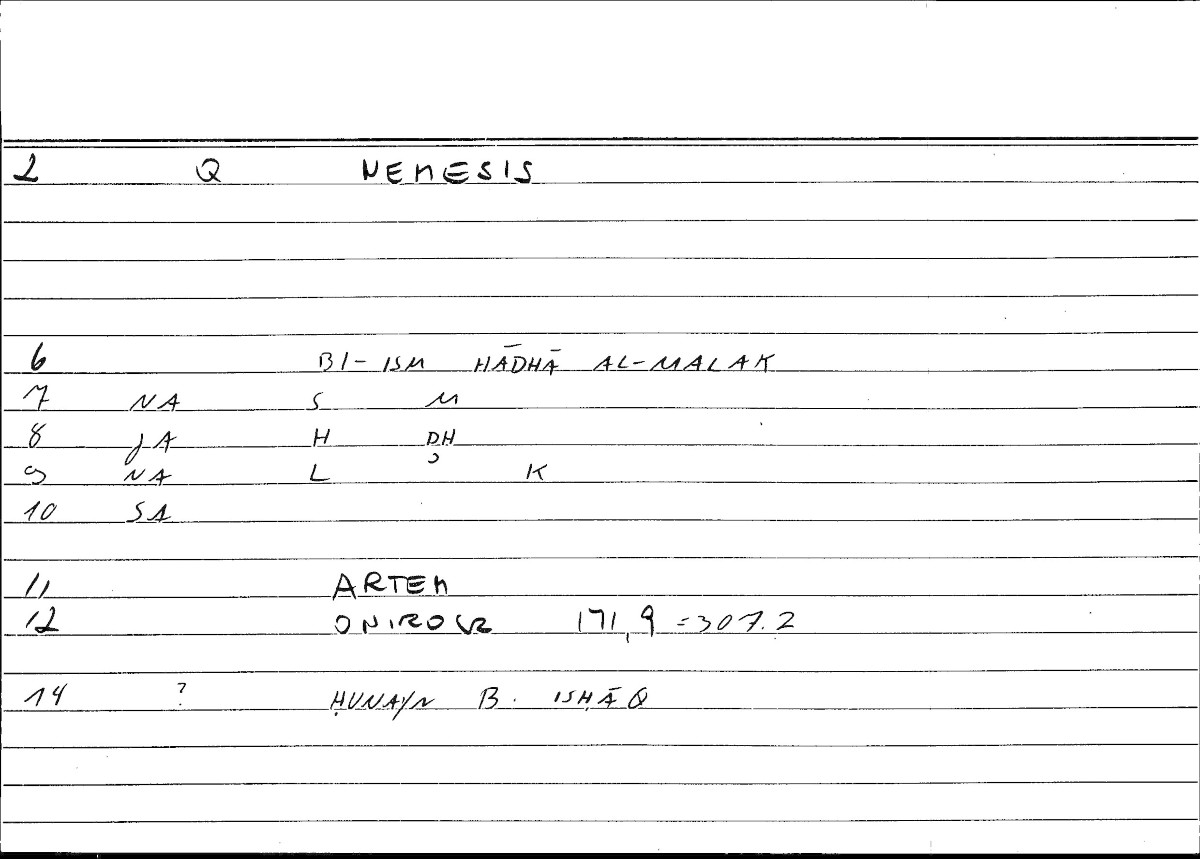 2 Q NEMESIS
6 BI-ISM HĀDHĀ AL-MALAK
7 NA S M
8 JA H DH
9 NA L ʾ K
10 SA
11 ARTEM
12 ONIROCR 171,9 =307.2
14 ? ḤUNAYN B. ISḤĀQ